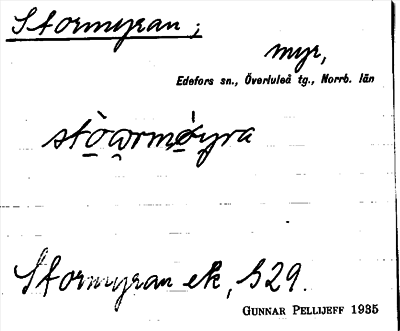 Stormyran;
myr,
Edefors sn., Överluleå tg., Norrb. län
stò̲a̮rmǿ̲yra
Stormyran ek, 529.
GUNNAR PELLIJEFF 1935